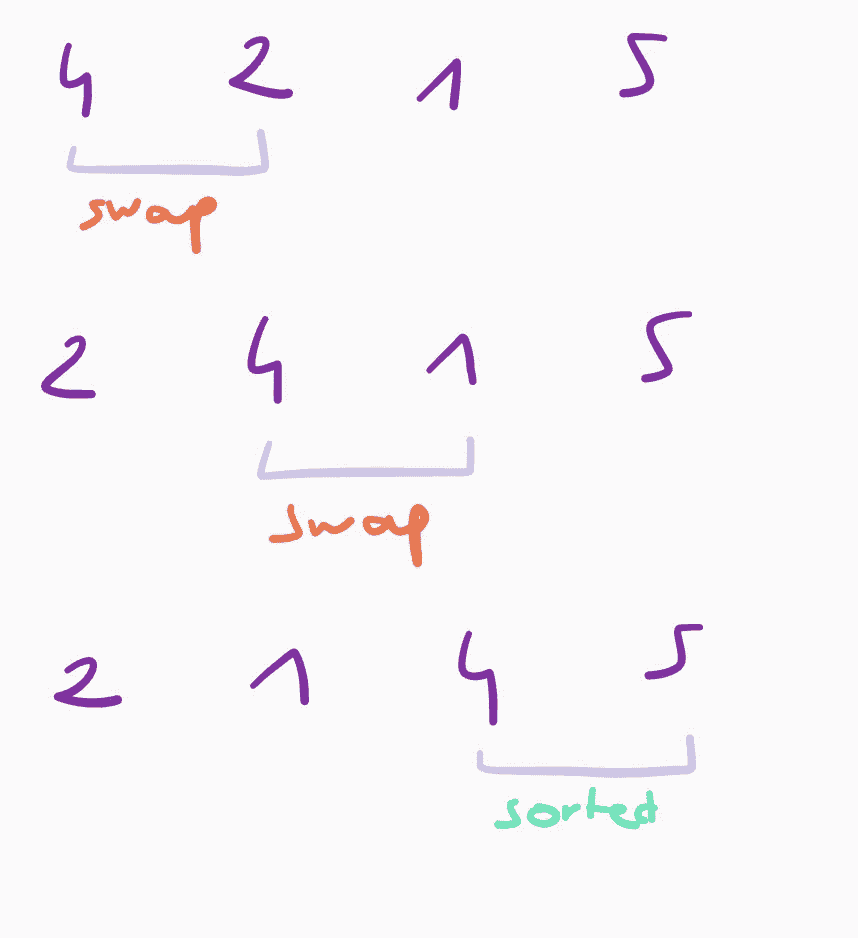 4 2 1 5
swap
2 4 1 5
swap
2 1 4 5
sorted